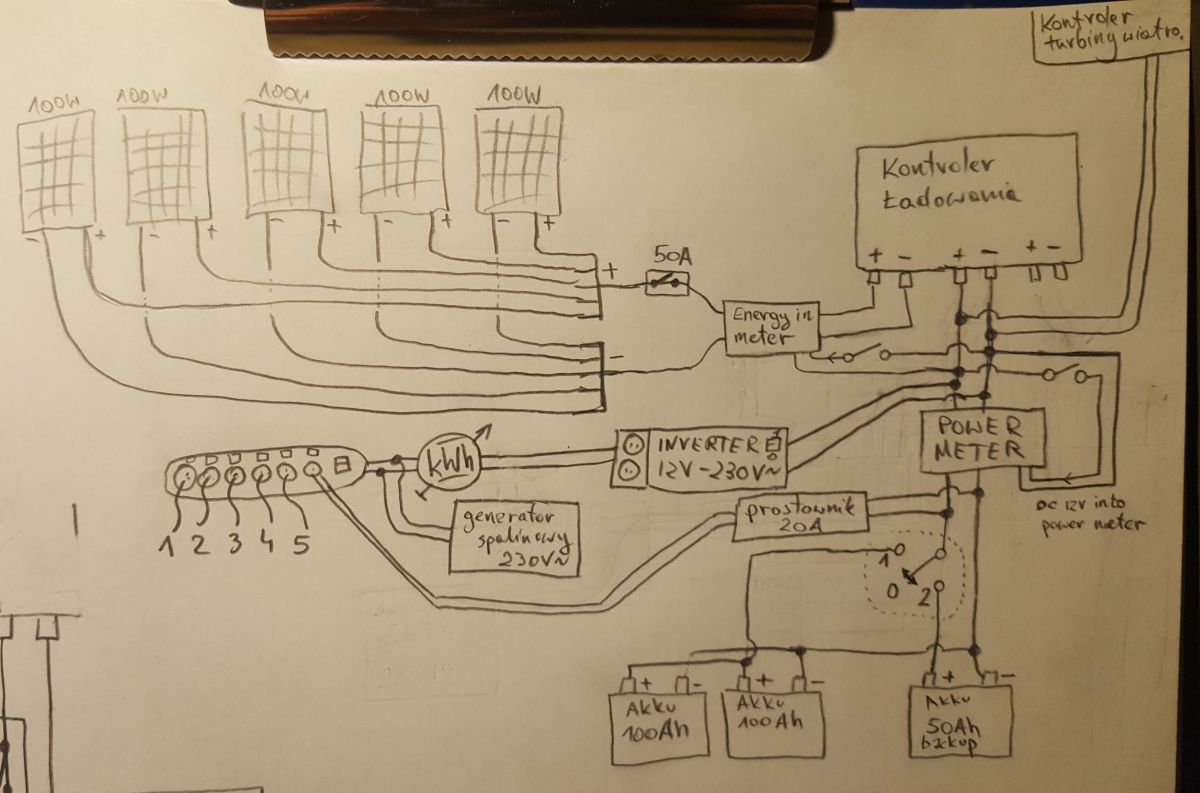 Kontroler
turbiny wiatro.
100W
100W
100W
100W
100W
Kontroler
Ładowania
+ - + - + -
- +
- +
- +
- +
- +
50A
+
Energy in
meter
-
POWER
METER
kWh
INVERTER
12V-230V~
DC 12V into
power meter
prostownik
20A
generator
spalinowy
230V~
1 2 3 4 5
1
0
2
+ -
Akku
100Ah
+ -
Akku
100Ah
+ -
Akku
50Ah
backup